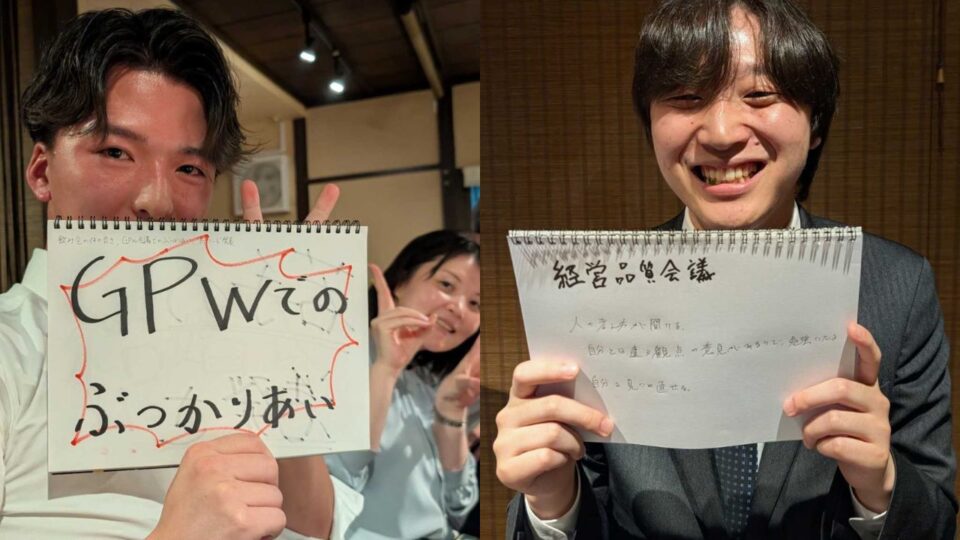 GPWでの
ぶつかりあい
経営品質会議
人の考え方が聞ける。
自分とは違う観点の意見があるので、勉強になる
自分を見つめ直せる。